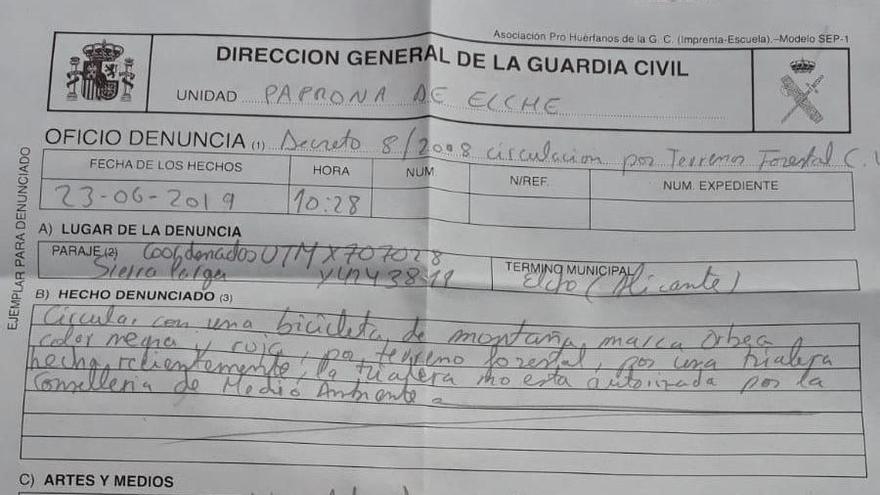 Asociación Pro Huérfanos de la G. C. (Imprenta-Escuela).–Modelo SEP-1
DIRECCION GENERAL DE LA GUARDIA CIVIL
UNIDAD PAPRONA DE ELCHE
EJEMPLAR PARA DENUNCIADO
OFICIO DENUNCIA (1) Decreto 8/2008 circulacion por Terrenos Forestal C.
FECHA DE LOS HECHOS HORA NUM N/REF. NUM. EXPEDIENTE
23-06-2019 10:28
A) LUGAR DE LA DENUNCIA
PARAJE (2) Coordenadas UTM X707028
Sierra Larga Y4243842
TERMINO MUNICIPAL
Elche (Alicante)
B) HECHO DENUNCIADO (3)
Circular con una bicicleta de montaña marca Orbea
color negra y roja, por terreno forestal, por una trialera
hecha recientemente, la trialera no esta autorizada por la
Conselleria de Medio Ambiente
C) ARTES Y MEDIOS